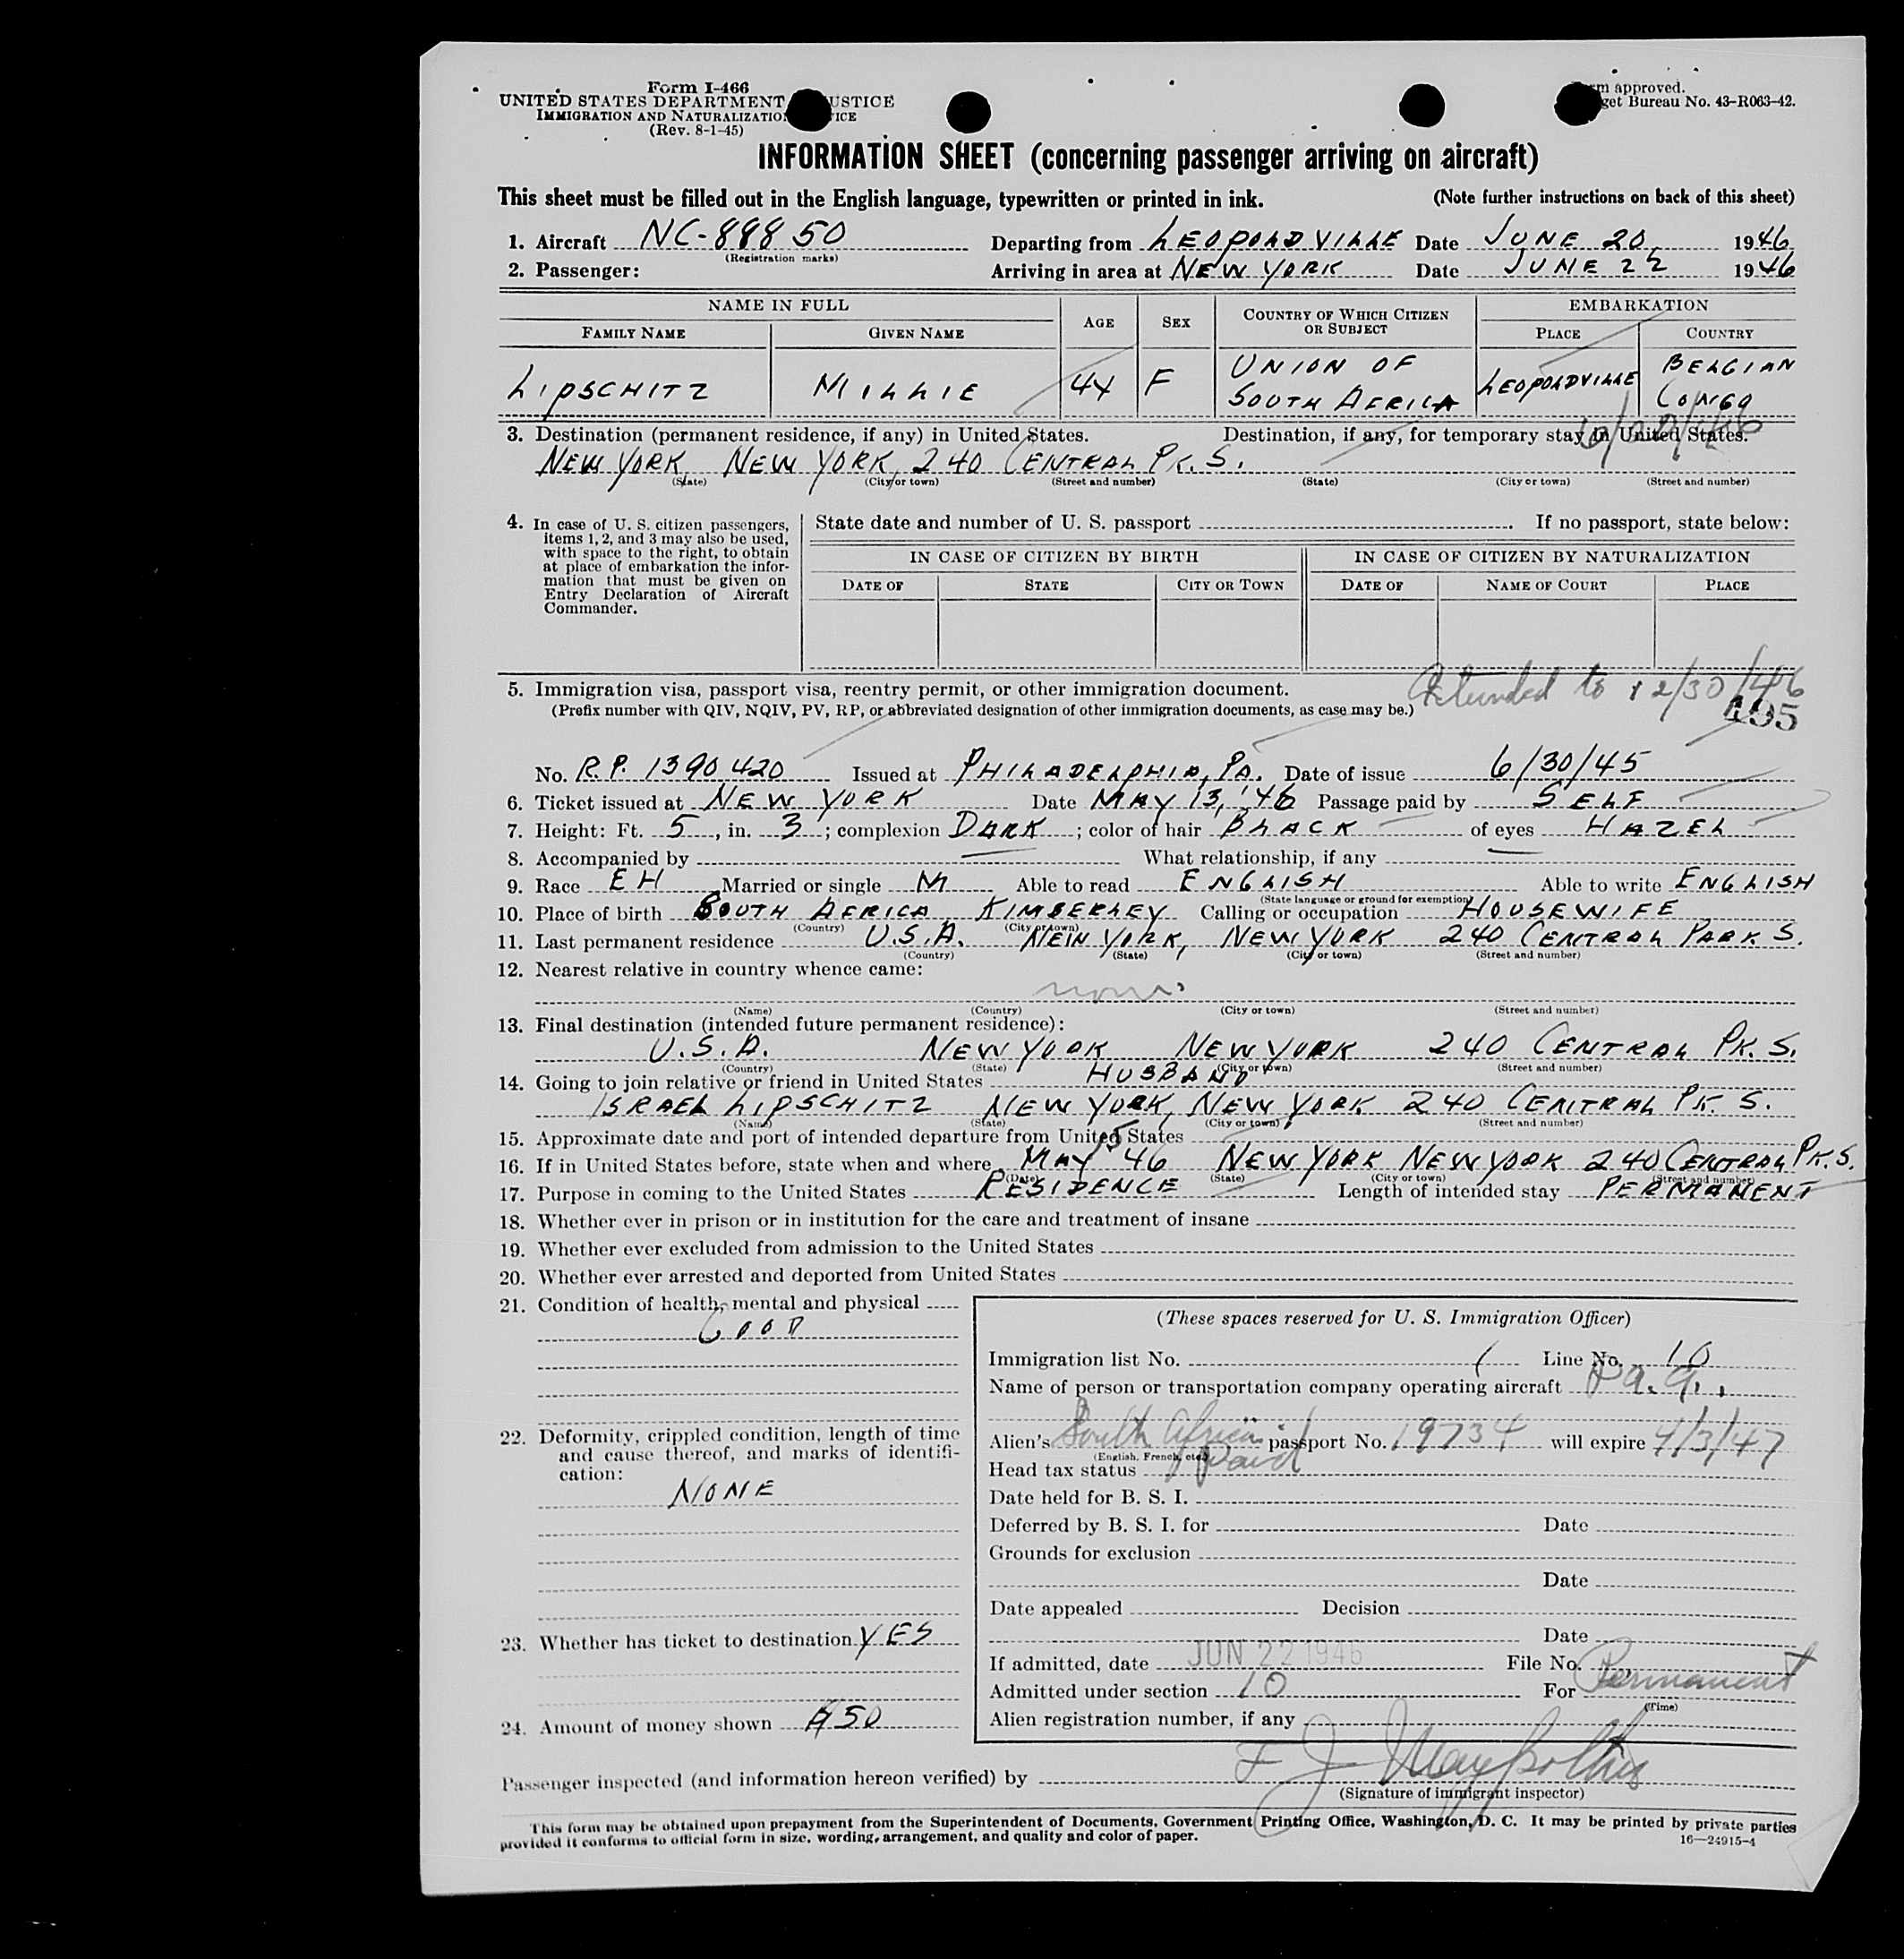 Form I-466
UNITED STATES DEPARTMENT USTICE
IMMIGRATION AND NATURALIZATIO ICE
(Rev. 8-1-45)
m approved.
get Bureau No. 43-R063-42.
INFORMATION SHEET (concerning passenger arriving on aircraft)
This sheet must be filled out in the English language, typewritten or printed in ink. (Note further instructions on back of this sheet)
1. Aircraft NC-88850 Departing from LEOPOLDVILLE Date JUNE 20, 1946
(Registration marks)
2. Passenger: Arriving in area at NEW YORK Date JUNE 22 1946
NAME IN FULL AGE SEX COUNTRY OF WHICH CITIZEN OR SUBJECT EMBARKATION
FAMILY NAME GIVEN NAME PLACE COUNTRY
LIPSCHITZ MILLIE 44 F UNION OF SOUTH AFRICA LEOPOLDVILLE BELGIAN CONGO
3. Destination (permanent residence, if any) in United States. Destination, if any, for temporary stay in United States.
NEW YORK, NEW YORK, 240 CENTRAL PK. S.
(State) (City or town) (Street and number) (State) (City or town) (Street and number)
4. In case of U. S. citizen passengers, items 1, 2, and 3 may also be used, with space to the right, to obtain at place of embarkation the information that must be given on Entry Declaration of Aircraft Commander.
State date and number of U. S. passport . If no passport, state below:
IN CASE OF CITIZEN BY BIRTH IN CASE OF CITIZEN BY NATURALIZATION
DATE OF STATE CITY OR TOWN DATE OF NAME OF COURT PLACE
5. Immigration visa, passport visa, reentry permit, or other immigration document. to 12/30/46
(Prefix number with QIV, NQIV, PV, RP, or abbreviated designation of other immigration documents, as case may be.)
No. R.P. 1390420 Issued at PHILADELPHIA, PA. Date of issue 6/30/45
6. Ticket issued at NEW YORK Date MAY 13, '46 Passage paid by SELF
7. Height: Ft. 5, in. 3; complexion DARK; color of hair BLACK of eyes HAZEL
8. Accompanied by — What relationship, if any —
9. Race EH Married or single M Able to read ENGLISH Able to write ENGLISH
(State language or ground for exemption)
10. Place of birth SOUTH AFRICA, KIMBERLEY Calling or occupation HOUSEWIFE
(Country) (City or town)
11. Last permanent residence U.S.A. NEW YORK, NEW YORK 240 CENTRAL PARK S.
(Country) (State) (City or town) (Street and number)
12. Nearest relative in country whence came:
none
(Name) (Country) (City or town) (Street and number)
13. Final destination (intended future permanent residence):
U.S.A. NEW YORK NEW YORK 240 CENTRAL PK. S.
(Country) (State) (City or town) (Street and number)
14. Going to join relative or friend in United States HUSBAND
ISRAEL LIPSCHITZ NEW YORK, NEW YORK 240 CENTRAL PK. S.
(Name) (State) (City or town) (Street and number)
15. Approximate date and port of intended departure from United States
16. If in United States before, state when and where MAY 15 46 NEW YORK NEW YORK 240 CENTRAL PK. S.
(Date) (State) (City or town) (Street and number)
17. Purpose in coming to the United States RESIDENCE Length of intended stay PERMANENT
18. Whether ever in prison or in institution for the care and treatment of insane
19. Whether ever excluded from admission to the United States
20. Whether ever arrested and deported from United States
21. Condition of health, mental and physical
GOOD
22. Deformity, crippled condition, length of time and cause thereof, and marks of identification:
NONE
23. Whether has ticket to destination YES
24. Amount of money shown $50
(These spaces reserved for U. S. Immigration Officer)
Immigration list No. 1 Line No. 10
Name of person or transportation company operating aircraft Pa. a.
Alien's South African passport No. 19734 will expire 4/3/47
(English, French, etc.)
Head tax status Paid
Date held for B. S. I.
Deferred by B. S. I. for Date
Grounds for exclusion
Date
Date appealed Decision
Date
If admitted, date JUN 22 1946 File No.
Admitted under section 10 For Permanent
(Time)
Alien registration number, if any
Passenger inspected (and information hereon verified) by
(Signature of immigrant inspector)
This form may be obtained upon prepayment from the Superintendent of Documents, Government Printing Office, Washington, D. C. It may be printed by private parties
provided it conforms to official form in size, wording, arrangement, and quality and color of paper.
16—24915-4